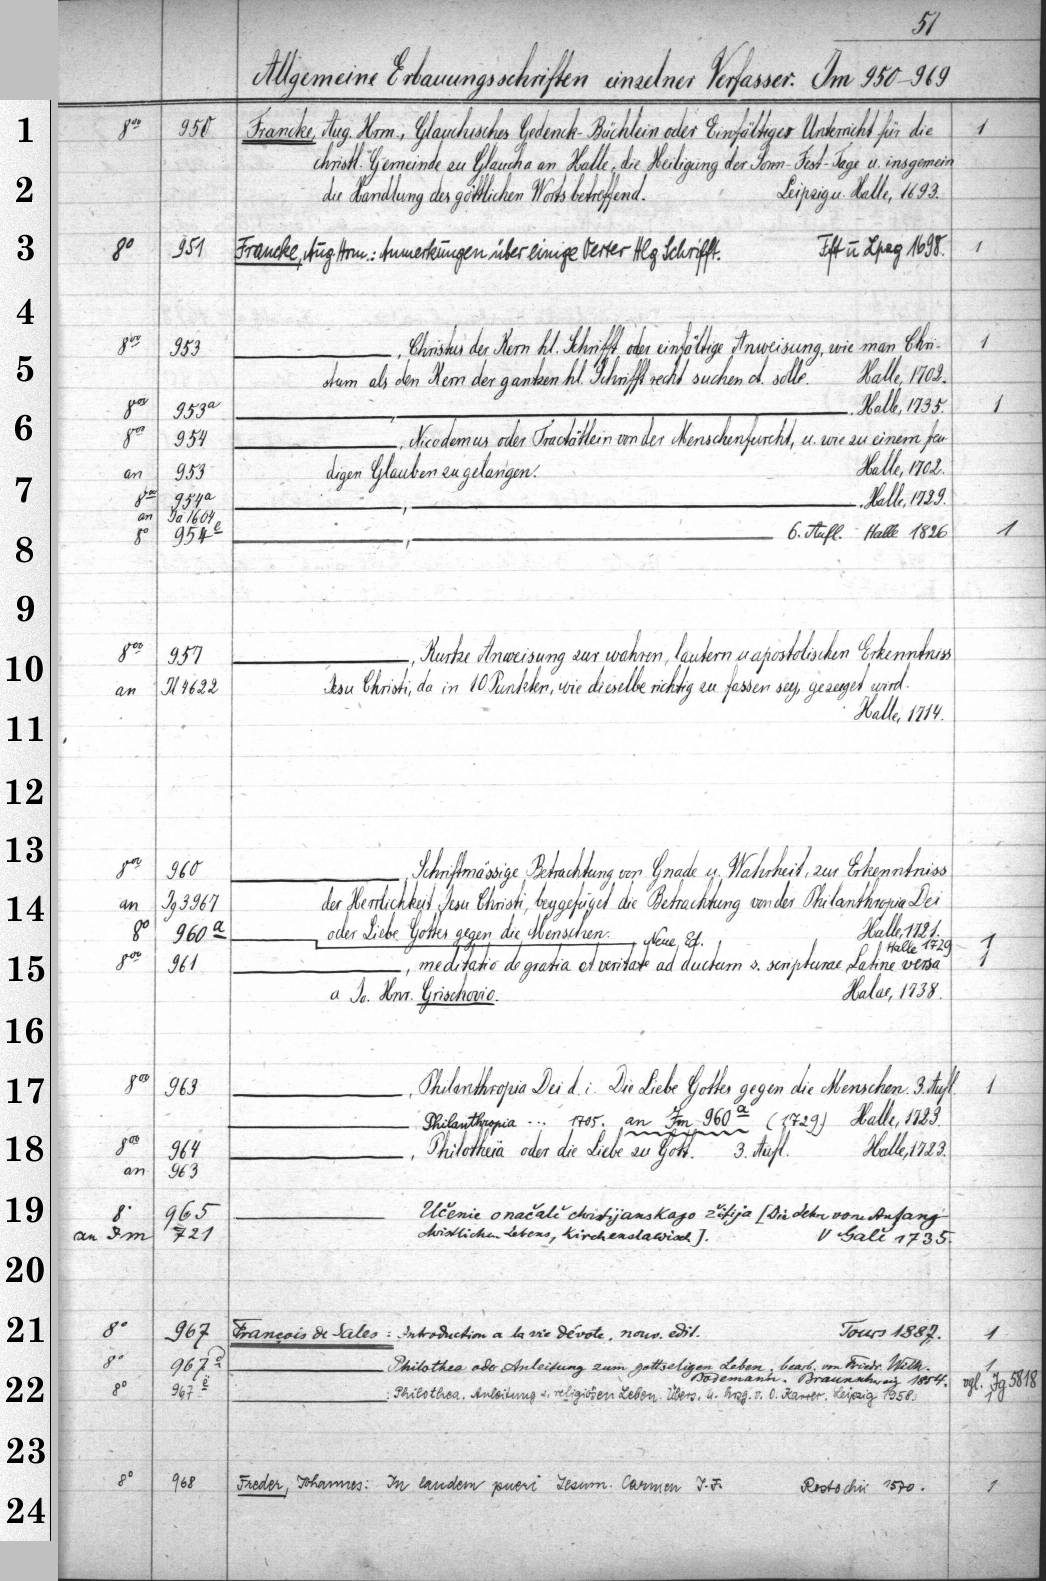 51
Allgemeine Erbauungsschriften einzelner Verfasser. Im 950-969
1
8vo 950 Francke, Aug. Hrm., Glauchisches Gedenck-Büchlein oder Einfältiger Unterricht für die 1
christl. Gemeinde zu Glaucha an Halle, die Heiligung der Sonn-Fest-Tage u. insgemein
2
die Handlung des göttlichen Worts betreffend. Leipzig u. Halle, 1693.
3
8° 951 Francke, Aug. Hrm.: Anmerkungen über einige Oerter Hlg Schrifft. Fft u Lpzg 1698. 1
4
8vo 953 , Christus der Kern hl. Schrifft oder einfältige Anweisung, wie man Chri- 1
5
stum als den Kern der gantzen hl. Schrifft recht suchen d. solle. Halle, 1702.
8vo 953a , . Halle, 1735. 1
6
8vo 954 , Nicodemus oder Tractätlein von der Menschenfurcht, u. wie zu einem freu
an 953 digen Glauben zu gelangen. Halle, 1702.
7
8vo 954a , . Halle, 1729.
an Ja 1604
8° 954e , 6. Aufl. Halle 1826 1
8
9
8vo 957 , Kurtze Anweisung zur wahren, lautern u apostolischen Erkenntniss
10
an Il 4622 Jesu Christi, da in 10 Punkten, wie dieselbe richtig zu fassen sey, gezeiget wird.
Halle, 1714.
11
12
13
8vo 960 , Schriftmässige Betrachtung von Gnade u. Wahrheit, zur Erkenntniss
14
an Ig 3967 der Herrlichkeit Jesu Christi, beygefüget die Betrachtung von der Philanthropia Dei
oder Liebe Gottes gegen die Menschen. Halle, 1721.
8° 960a Neue Ed. Halle 1729 1
15
8vo 961 , meditatio de gratia et veritate ad ductum s. scripturae, Latine versa 1
a Jo. Hnr. Grischovio. Halae, 1738.
16
17
8vo 963 , Philanthropia Dei d. i. Die Liebe Gottes gegen die Menschen. 3. Aufl. 1
Halle, 1723.
Philanthropia ... 1705. an Im 960a (1729)
18
8vo 964 , Philotheia oder die Liebe zu Gott. 3. Aufl. Halle, 1723.
an 963
19
8° 965 Učenie o načalě christijanskago žitija [Die Lehre vom Anfang
an Im 721 christlichen Lebens, Kirchenslawisch]. V Galě 1735.
20
21
8° 967 François de Sales: Introduction a la vie dévote, nouv. edit. Tours 1887. 1
8° 967a Philothea odo Anleitung zum gottseligen Leben, bearb. von Friedr. Wilh. 1
Bodemann. Braunschweig 1854. vgl. Jg 5818
22
8° 967 : Philothea. Anleitung z. religiösen Leben. Übers. u. hrsg. v. O. Karrer. Leipzig 1958. 1
23
8° 968 Freder, Johannes: In laudem pueri Jesum. Carmen J. F. Rostochii 1570. 1
24